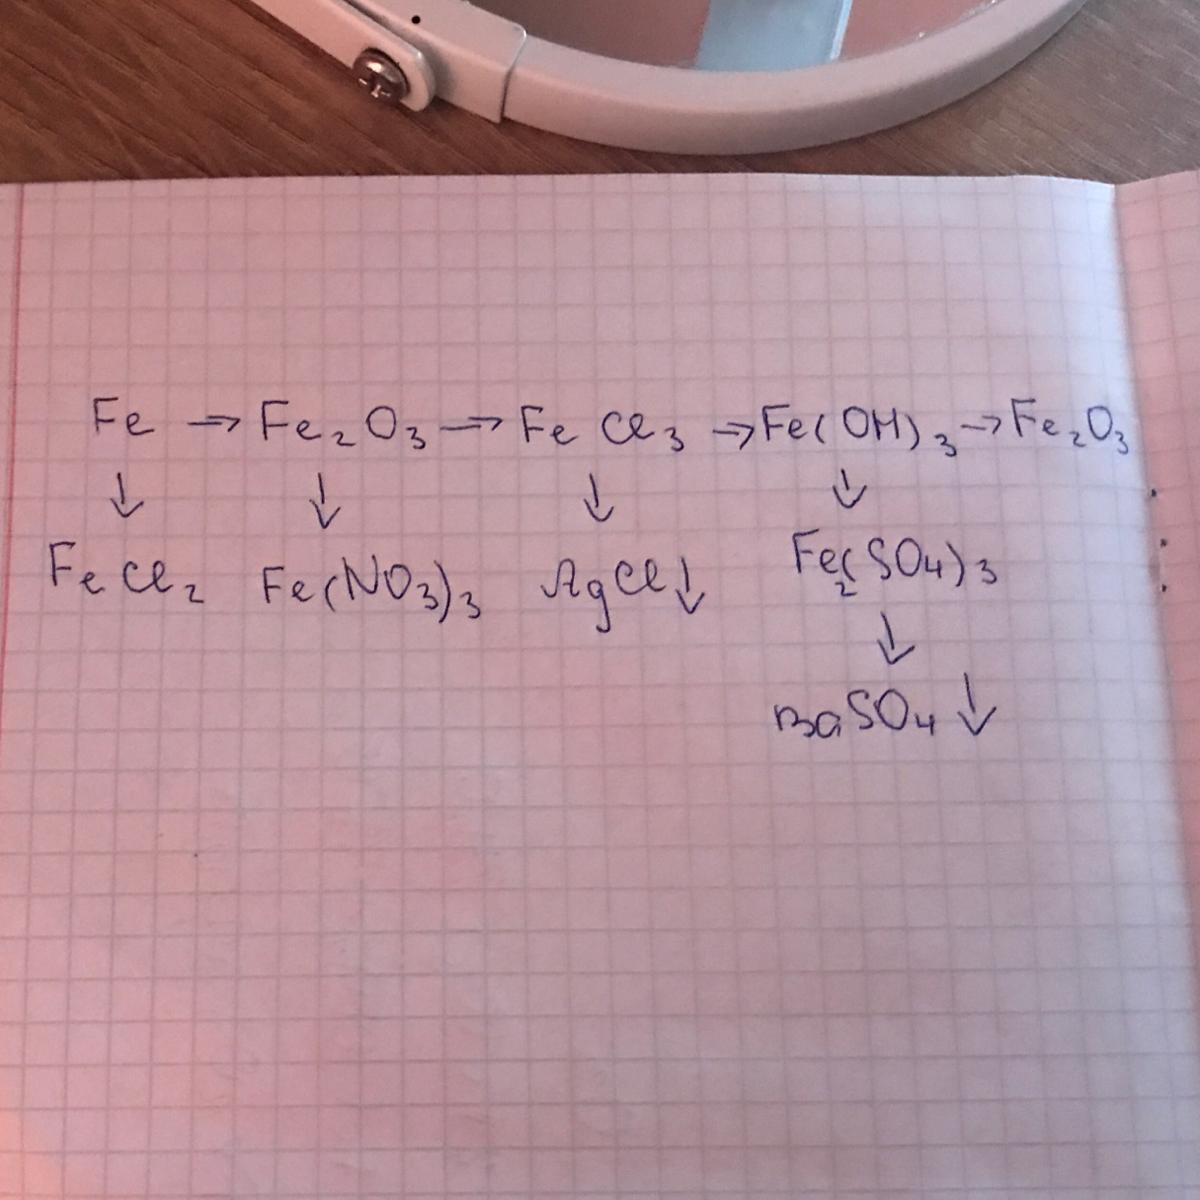 Fe → Fe₂O₃ → FeCl₃ → Fe(OH)₃ → Fe₂O₃
↓ ↓ ↓ ↓
FeCl₂ Fe(NO₃)₃ AgCl↓ Fe₂(SO₄)₃
↓
BaSO₄↓